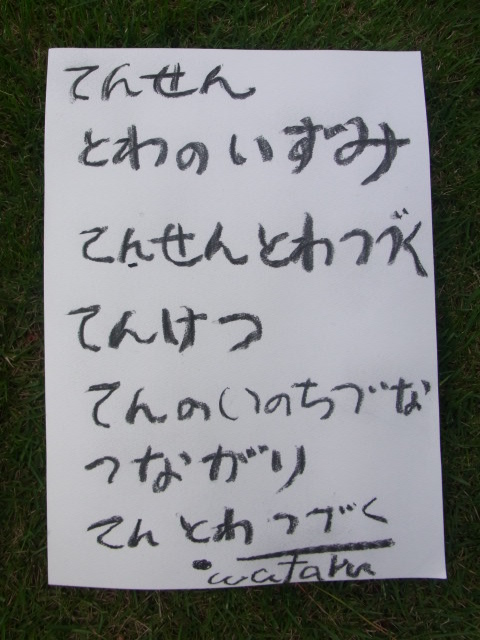 てんせん
とわのいずみ
てんせんとわつづく
てんけつ
てんのいのちづな
つながり
てんとわつづく
wataru